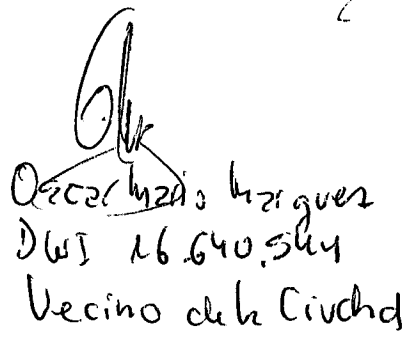 Oscar Mario Marquez
DNI 16.640.544
Vecino de la Ciudad